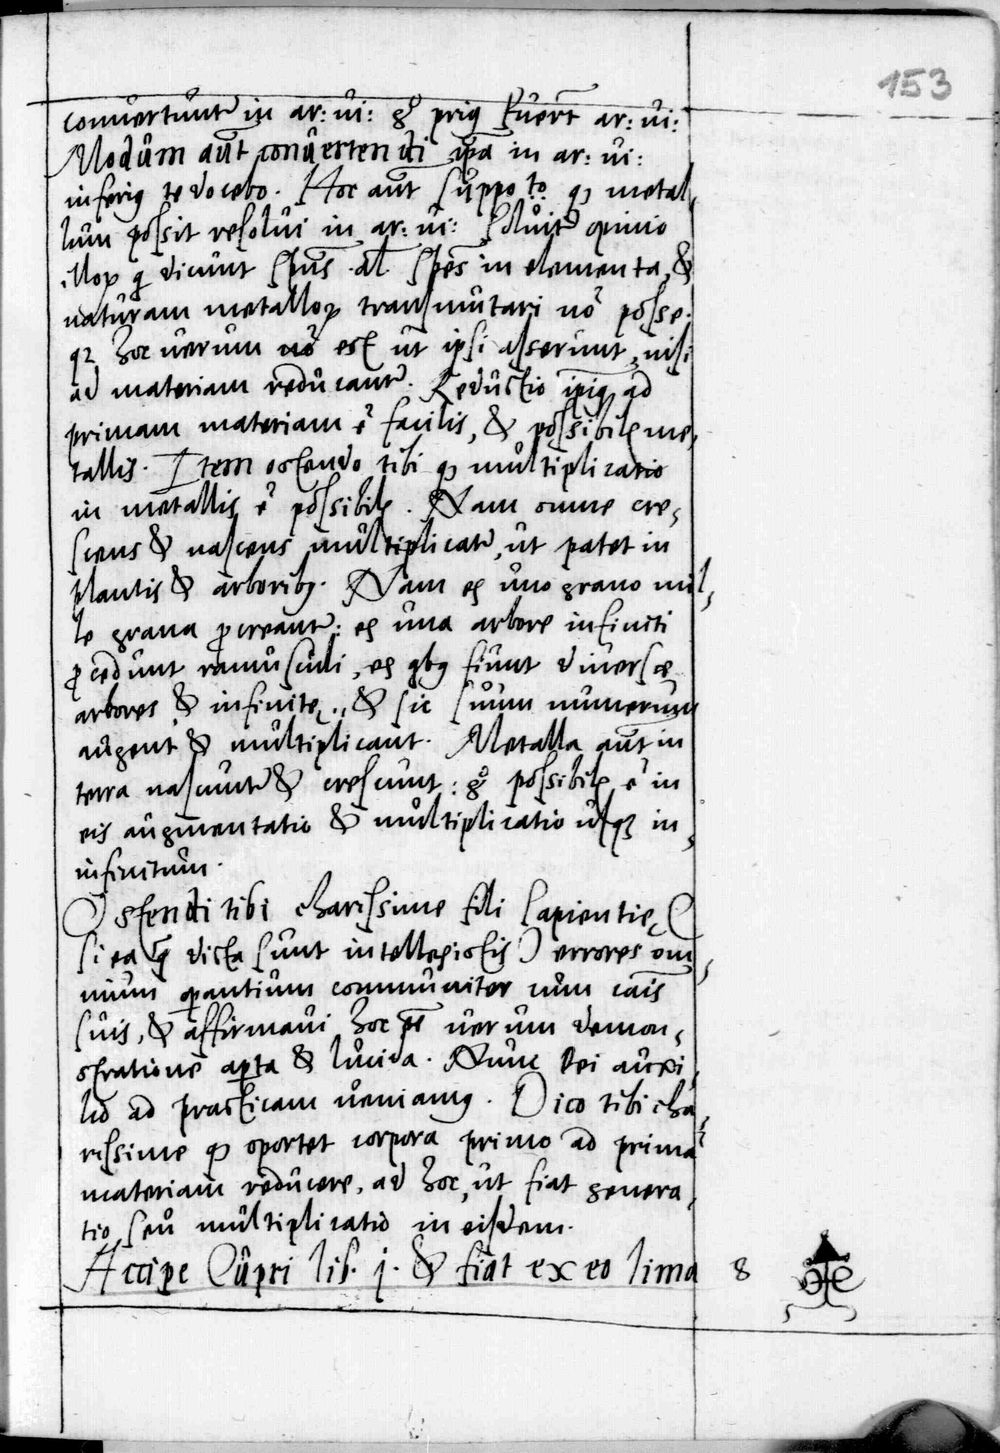 153
conuertunt᷑ in ar: ui: g° priꝰ fuer̄t ar: ui:
Modum aūt conuertendi ip̄a in ar: ui:
inferiꝰ te docebo. Hoc aūt suppoto ꝙ metal,
lum possit resolui in ar: ui: soluit᷑ opinio
illoꝝ q dicunt sp̄us al sp̄es in elementa, &
naturam metalloꝝ transmutari nō posse.
qꝛ hoc uerum nō est ut ipsi asserunt, nisi
ad materiam reducant᷑. Reductio ip̄iꝰ ad
primam materiam ē facilis, & possibilꝭ me,
tallis. Item ostendo tibi ꝙ multiplicatio
in metallis ē possibilꝭ. Nam omne cre,
scens & nascens multiplicat᷑, ut patet in
plantis & arboribꝰ. Nam ex uno grano mil,
le grana ꝓcreant᷑: ex una arbore infiniti
ꝓcedunt ramusculi, ex qbꝰ fiunt diuersæ
arbores & infinitę, & sic suum numerum
augent & multiplicant. Metalla aūt in
terra nascunt᷑ & crescunt: g° possibilꝭ ē in
eis augmentatio & multiplicatio usqꝫ in,
infinitum.
Ostendi tibi charissime fili sapientię (
si ea q̄ dicta sunt intellexistis) errores om,
nium oꝑantium communiter cum cāis
suis, & affirmaui hoc uerum demon,
stratione aꝑta & lucida. Nunc Dei auxi,
lio ad practicam ueniamꝰ. Dico tibi cha,
rissime ꝙ oportet corpora primo ad primā
materiam reducere, ad hoc, ut fiat genera,
tio seu multiplicatio in eisdem.
Accipe Cupri lib. j. & fiat ex eo lima
8